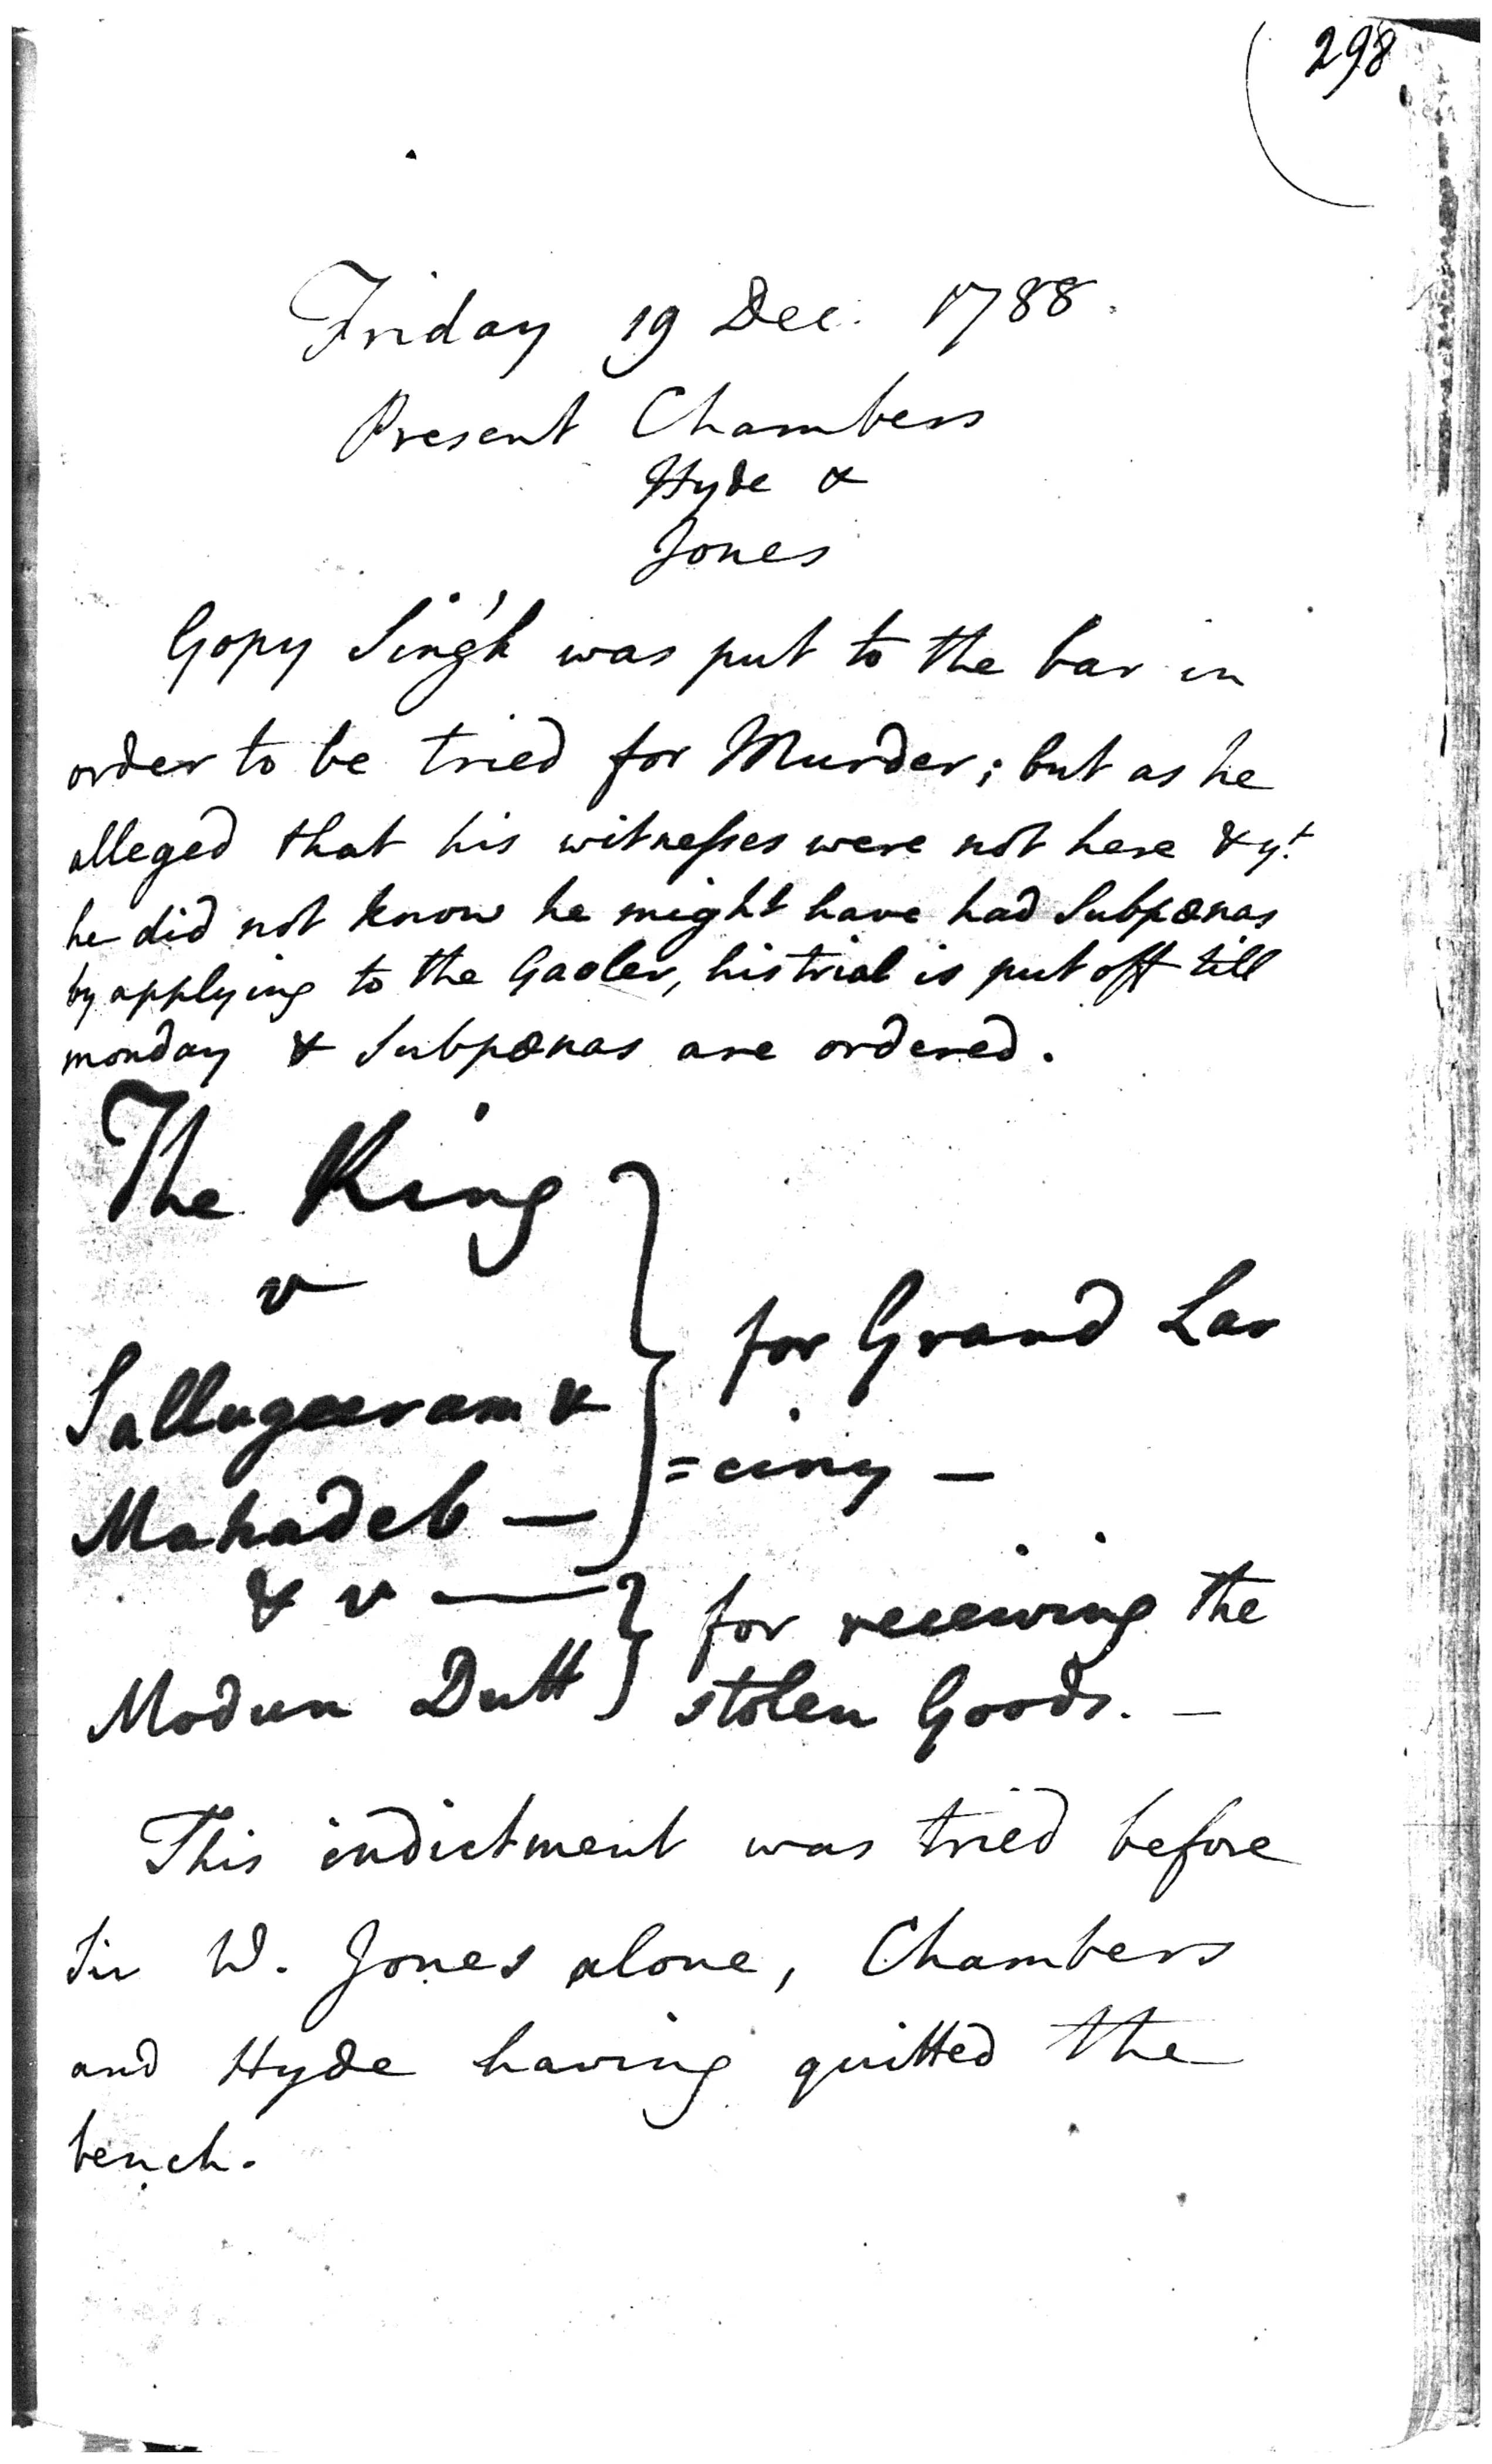 298
Friday 19 Dec. 1788.
Present Chambers
Hyde &
Jones
Gopy Sing'h was put to the bar in
order to be tried for Murder; but as he
alleged that his witnesses were not here & yt.
he did not know he might have had Subpœnas
by applying to the Gaoler, his trial is put off till
monday & Subpœnas are ordered.
The King
v
for Grand Lar
Sallugeeram &
=ciny —
Mahadeb —
& v —
for receiving the
Modun Dutt
stolen Goods. —
This indictment was tried before
Sir W. Jones alone, Chambers
and Hyde having quitted the
bench.